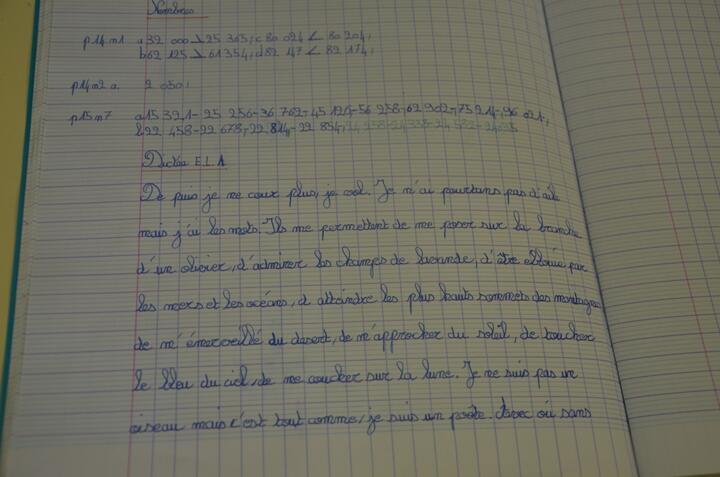 Nombres
p14 m1 a 32 000 > 25 365, c 80 024 < 80 204,
b 62 125 > 61 354, d 82 147 < 82 174,
p14 m2 a. 2 050,
p15 m7 a 15 321 - 25 256 - 36 762 - 45 126 - 56 258 - 62 902 - 75 214 - 96 021.
b 22 458 - 22 678 - 22 814 - 22 854
Dictée E.L.A
De puis je ne cour plus, je vol. Je n'ai pourtans pas d'aile
mais j'ai les mots. Ils me permettent de me poser sur la branche
d'un olivier, d'admirer les champs de lavande, d'être éblouie par
les mers et les océans, d'atteindre les plus hauts sommets des montagnes
de m'émerveillé du desert, de m'approcher du soleil, de toucher
le bleu du ciel, de me coucher sur la lune. Je ne suis pas un
oiseau mais c'est tout comme, je suis un poète. Avec ou sans